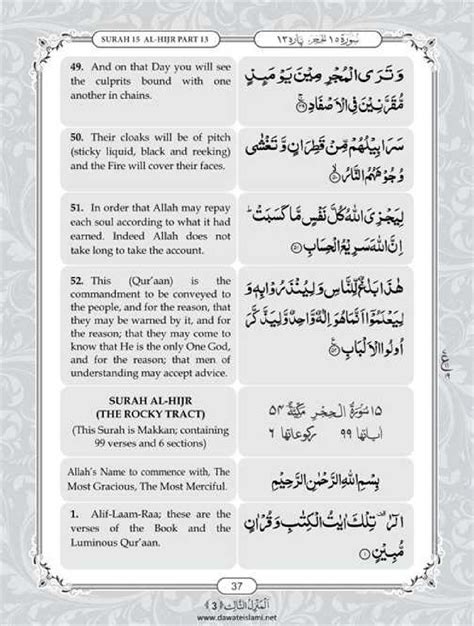 SURAH 15 AL-HIJR PART 13
سورة ١٥ الحجر پاره ١٣
49. And on that Day you will see
the culprits bound with one
another in chains.
وَتَرَى الْمُجْرِمِيْنَ يَوْمَئِذٍ
مُّقَرَّنِيْنَ فِي الْاَصْفَادِ ﴿٤٩﴾
50. Their cloaks will be of pitch
(sticky liquid, black and reeking)
and the Fire will cover their faces.
سَرَابِيْلُهُمْ مِّنْ قَطِرَانٍ وَّتَغْشٰى
وُجُوْهَهُمُ النَّارُ ﴿٥٠﴾
51. In order that Allah may repay
each soul according to what it had
earned. Indeed Allah does not
take long to take the account.
لِيَجْزِيَ اللّٰهُ كُلَّ نَفْسٍ مَّا كَسَبَتْ ؕ
اِنَّ اللّٰهَ سَرِيْعُ الْحِسَابِ ﴿٥١﴾
52. This (Qur'aan) is the
commandment to be conveyed to
the people, and for the reason, that
they may be warned by it, and for
the reason; that they may come to
know that He is the only One God,
and for the reason; that men of
understanding may accept advice.
هٰذَا بَلٰغٌ لِّلنَّاسِ وَلِيُنْذَرُوْا بِهٖ وَ
لِيَعْلَمُوْۤا اَنَّمَا هُوَ اِلٰهٌ وَّاحِدٌ وَّلِيَذَّكَّرَ
اُولُوا الْاَلْبَابِ ﴿٥٢﴾
SURAH AL-HIJR
(THE ROCKY TRACT)
(This Surah is Makkan; containing
99 verses and 6 sections)
١٥ سُوْرَةُ الْحِجْرِ مَكِّيَّةٌ ٥٤
اٰياتها ٩٩ ركوعاتها ٦
Allah's Name to commence with, The
Most Gracious, The Most Merciful.
بِسْمِ اللّٰهِ الرَّحْمٰنِ الرَّحِيْمِ
1. Alif-Laam-Raa; these are the
verses of the Book and the
Luminous Qur'aan.
الٓرٰ ۟ تِلْكَ اٰيٰتُ الْكِتٰبِ وَقُرْاٰنٍ
مُّبِيْنٍ ﴿١﴾
37
اَلْمَنْزِلُ الثَّالِث ﴿3﴾
www.dawateislami.net